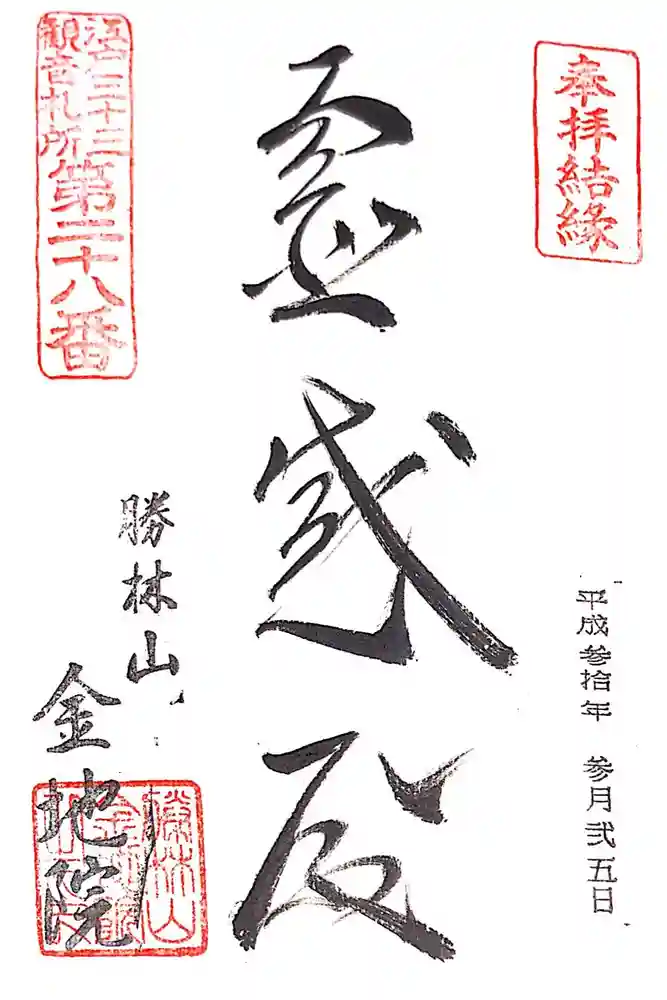 奉拝結縁
平成参拾年 参月弐五日
霊感殿
江戸三十三
観音札所
第二十八番
勝林山
金地院
勝林山